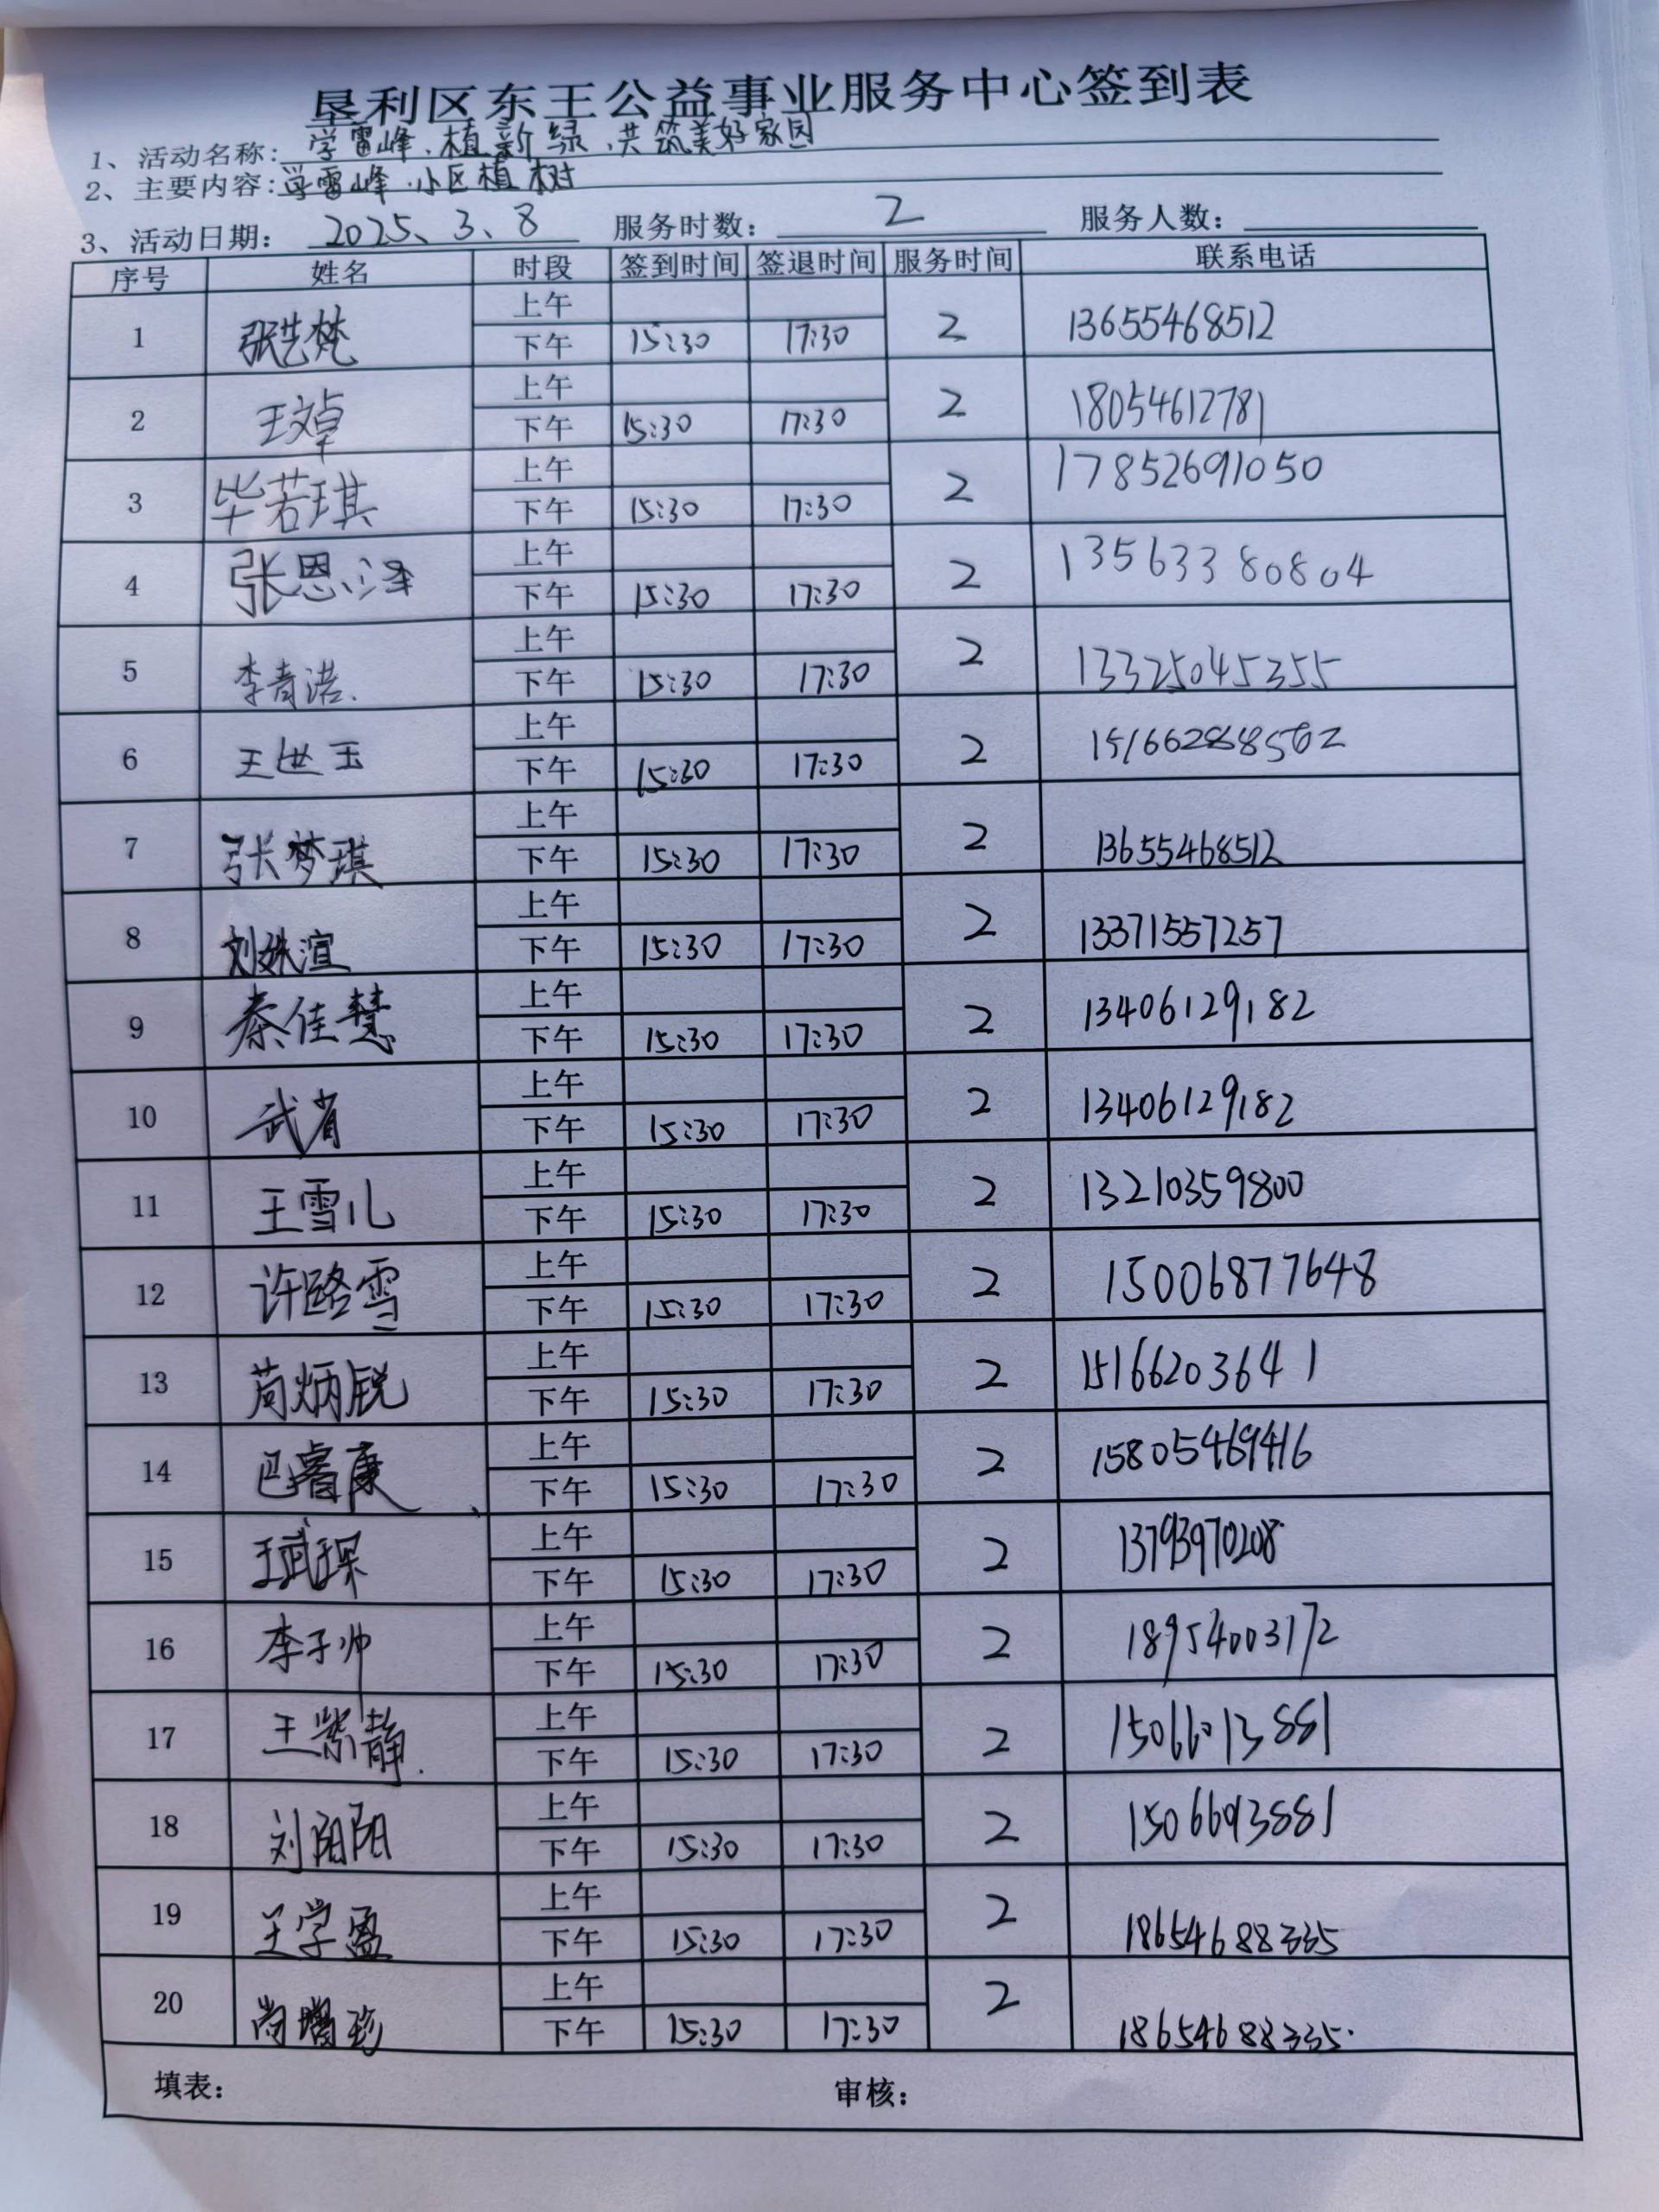 垦利区东王公益事业服务中心签到表
1、活动名称: 学雷峰、植新绿、共筑美好家园
2、主要内容: 学雷峰、小区植树
3、活动日期: 2025、3、8 服务时数: 2 服务人数:
序号 姓名 时段 签到时间 签退时间 服务时间 联系电话
上午
1 张艺梵 下午 15:30 17:30 2 13655468512
上午
2 王文卓 下午 15:30 17:30 2 18054612781
上午
3 毕若琪 下午 15:30 17:30 2 17852691050
上午
4 张恩泽 下午 15:30 17:30 2 13563380804
上午
5 李青洪 下午 15:30 17:30 2 13325045355
上午
6 王世玉 下午 15:30 17:30 2
上午
7 张梦琪 下午 15:30 17:30 2 13655468512
上午
8 刘姝渲 下午 15:30 17:30 2 13371557257
上午
9 秦佳慧 下午 15:30 17:30 2 13406129182
上午
10 武省 下午 15:30 17:30 2 13406129182
上午
11 王雪儿 下午 15:30 17:30 2 13210359800
上午
12 许路雪 下午 15:30 17:30 2 15006877648
上午
13 苘炳锐 下午 15:30 17:30 2 15166203641
上午
14 巴睿康 下午 15:30 17:30 2 15805469416
上午
15 王斌琛 下午 15:30 17:30 2 13793970208
上午
16 李子帅 下午 15:30 17:30 2 18954003172
上午
17 王紫静 下午 15:30 17:30 2 15066013881
上午
18 刘阳阳 下午 15:30 17:30 2 15066013881
上午
19 王学盈 下午 15:30 17:30 2 18654688335
上午
20 尚增珍 下午 15:30 17:30 2 18654688335
填表: 审核: